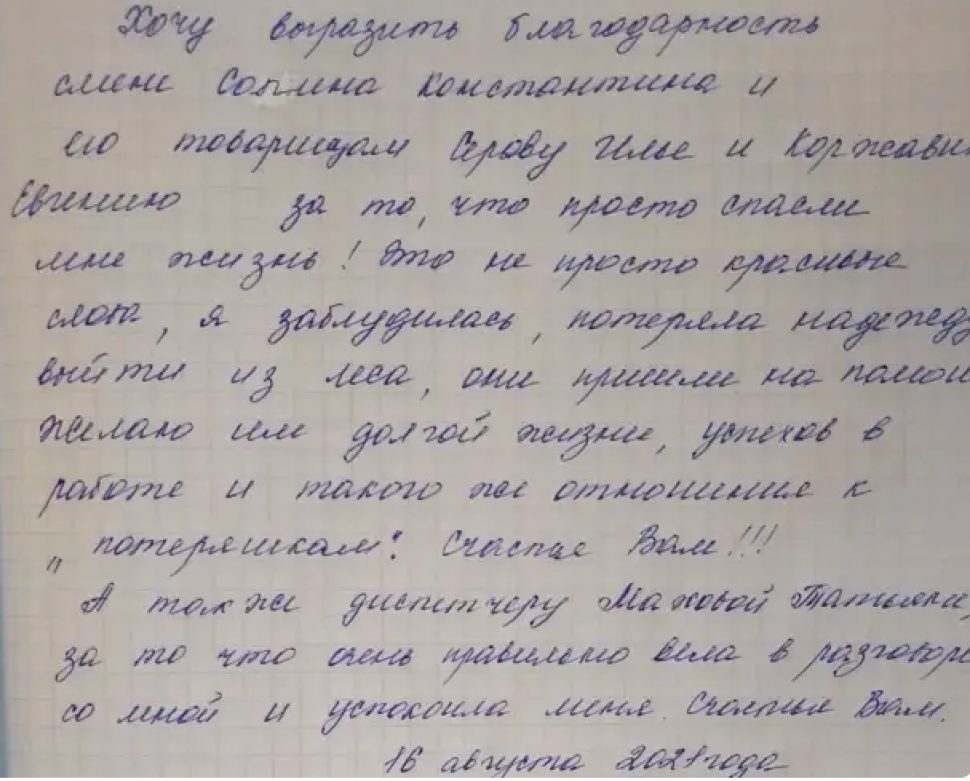 Хочу выразить благодарность
смене Сопина Константина и
его товарищам Серову Илье и Коржави
Евгению за то, что просто спасли
мне жизнь! Это не просто красивые
слова, я заблудилась, потеряла надежду
выйти из леса, они пришли на помощ
желаю им долгой жизни, успехов в
работе и такого же отношения к
„потеряшкам". Счастье Вам!!!
А также диспетчеру Маховой Татьяне,
за то что очень правильно вела в разговоре
со мной и успокоила меня. Счастья Вам.
16 августа 2021 года